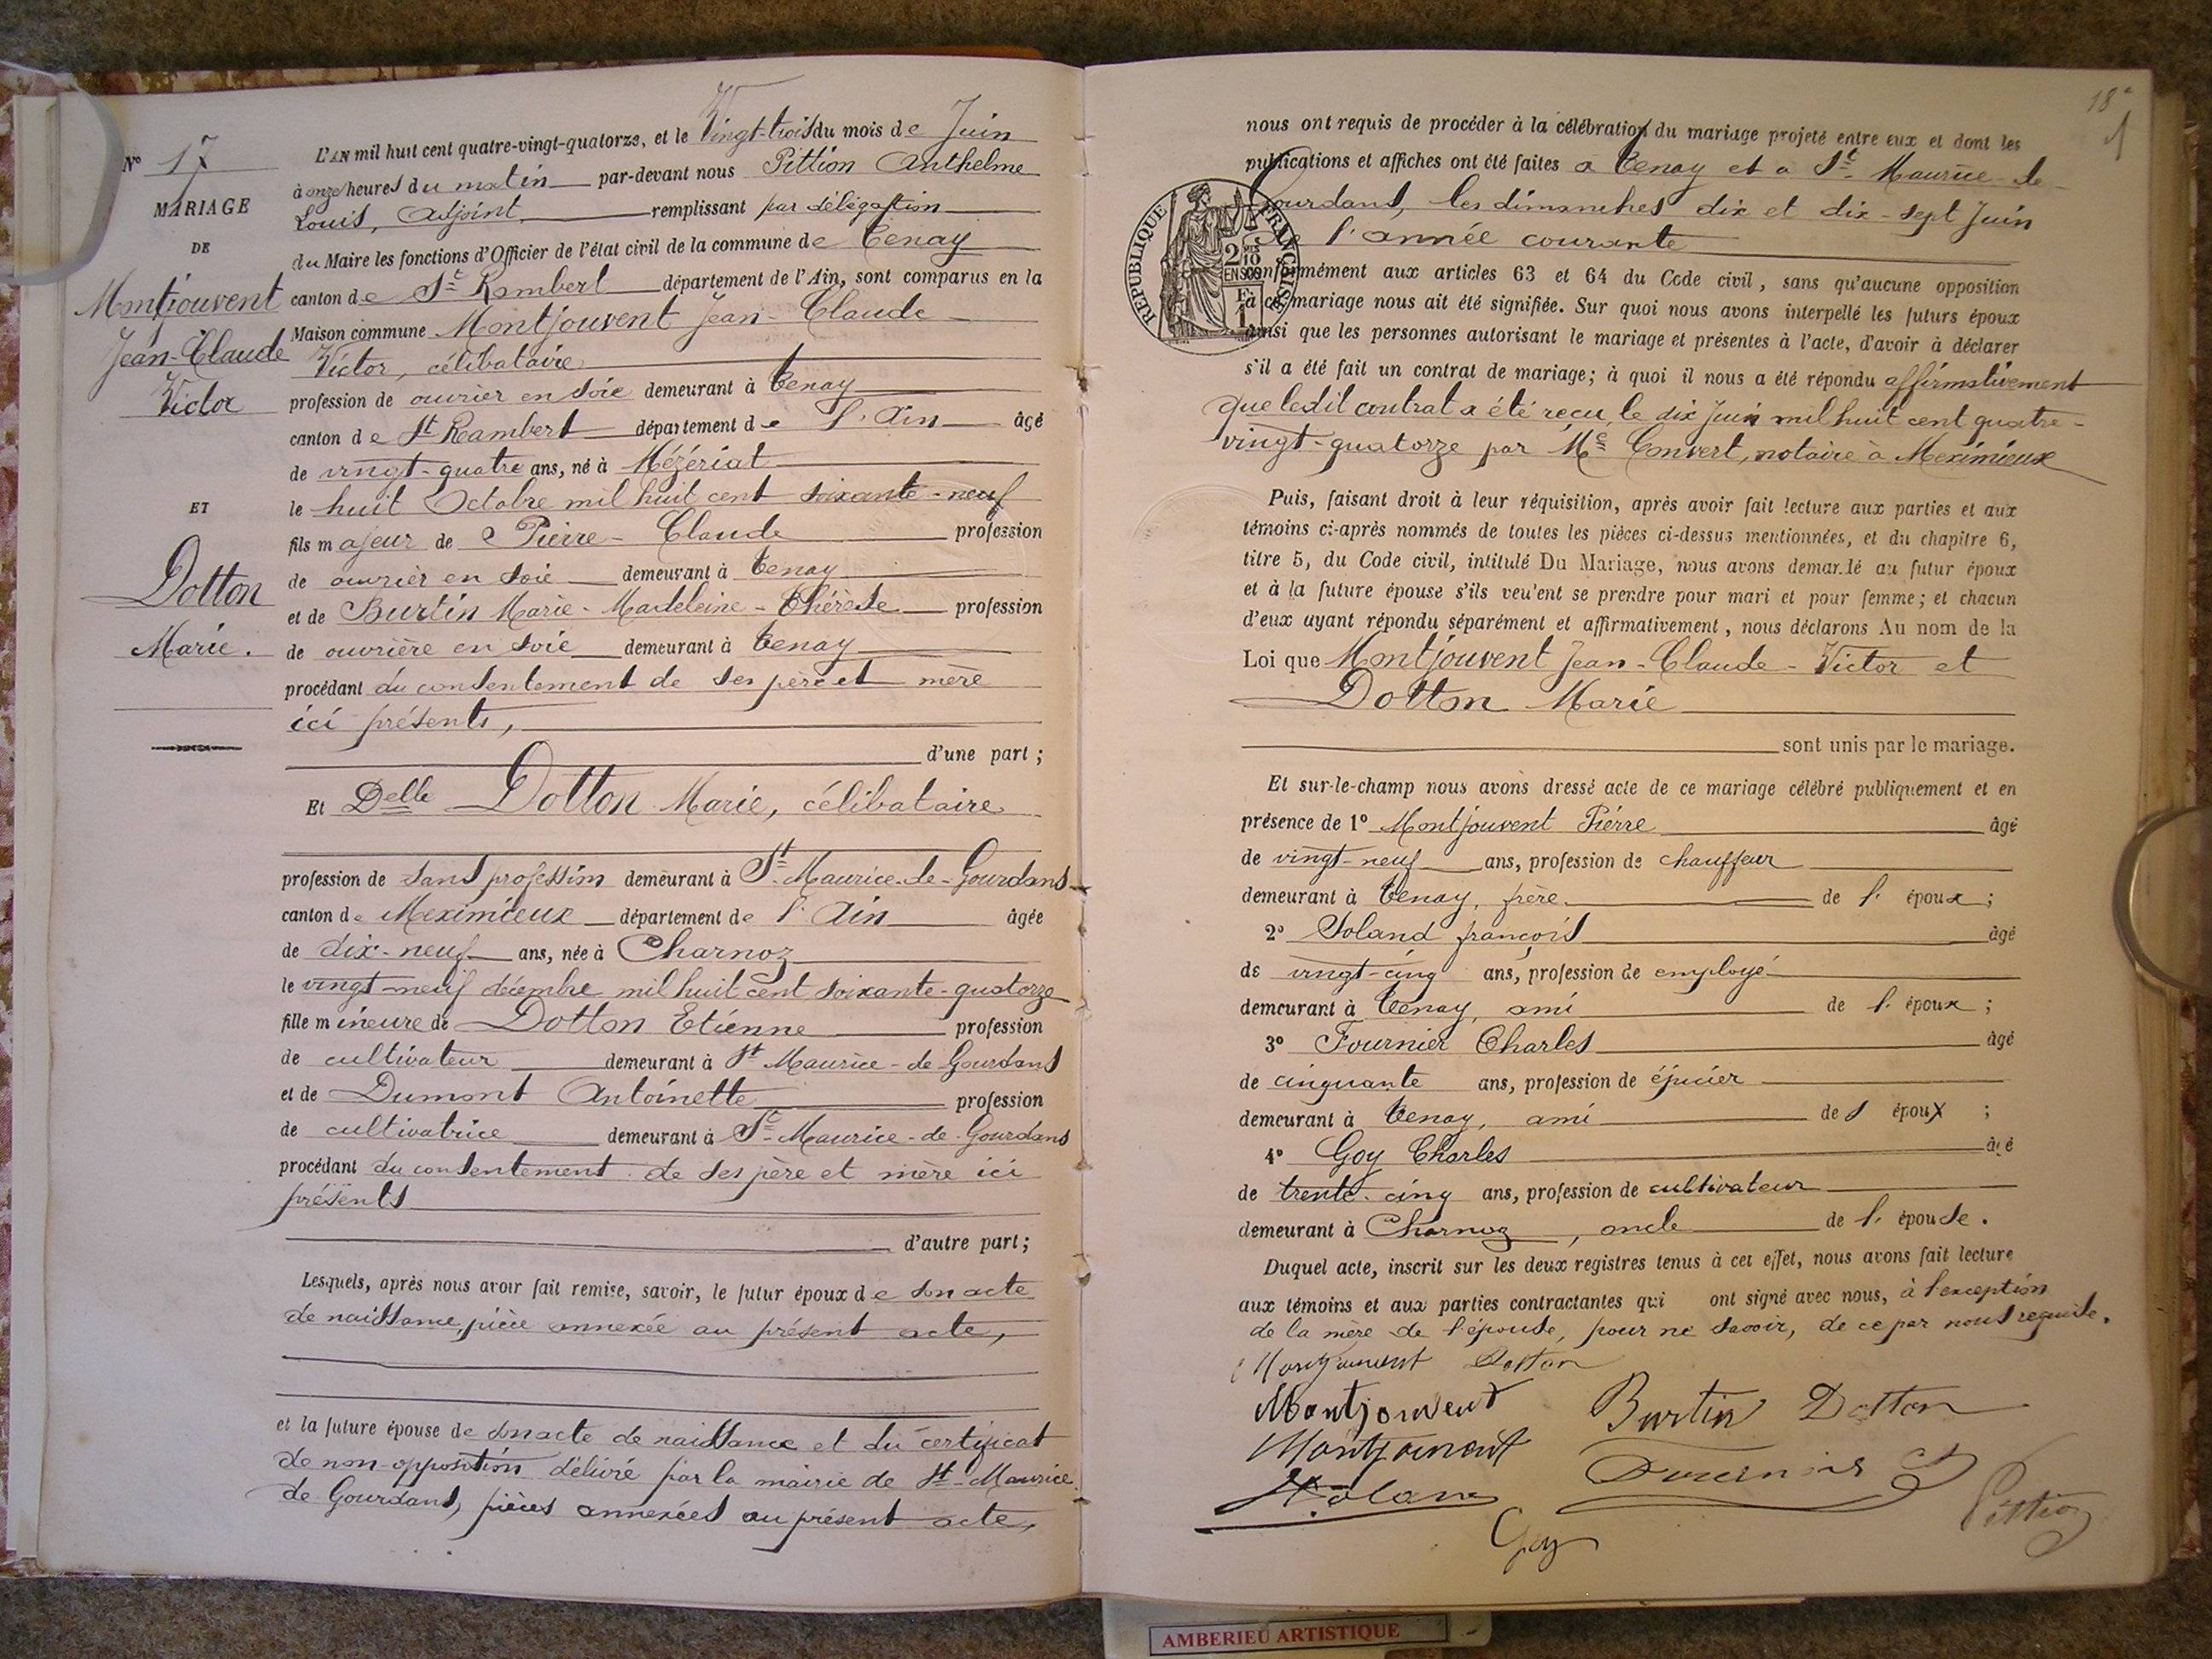 N° 17
MARIAGE
DE
Montjouvent
Jean-Claude
Victor
ET
Dotton
Marie.
L'AN mil huit cent quatre-vingt-quatorze, et le Vingt-trois du mois de Juin
à onze heures du matin par-devant nous Pittion Anthelme
Louis, Adjoint remplissant par délégation
du Maire les fonctions d'Officier de l'état civil de la commune de Tenay
canton de St Rambert département de l'Ain, sont comparus en la
Maison commune Montjouvent Jean-Claude
Victor, célibataire
profession de ouvrier en soie demeurant à Tenay
canton de St Rambert département de l'Ain âgé
de vingt-quatre ans, né à Mézériat
le huit Octobre mil huit cent soixante-neuf
fils majeur de Pierre-Claude profession
de ouvrier en soie demeurant à Tenay
et de Burtin Marie-Madeleine-Thérèse profession
de ouvrière en soie demeurant à Tenay
procédant du consentement de ses père et mère
ici présents,
d'une part ;
Et Delle Dotton Marie, célibataire
profession de sans profession demeurant à St-Maurice-de-Gourdans
canton de Meximieux département de l'Ain âgée
de dix-neuf ans, née à Charnoz
le vingt-neuf décembre mil huit cent soixante-quatorze
fille mineure de Dotton Etienne profession
de cultivateur demeurant à St Maurice-de Gourdans
et de Dumont Antoinette profession
de cultivatrice demeurant à St-Maurice-de-Gourdans
procédant du consentement de ses père et mère ici
présents
d'autre part ;
Lesquels, après nous avoir fait remise, savoir, le futur époux de son acte
de naissance, pièce annexée au présent acte,
et la future épouse de son acte de naissance et du certificat
de non-opposition délivré par la mairie de St-Maurice
de Gourdans, pièces annexées au présent acte,
18
nous ont requis de procéder à la célébration du mariage projeté entre eux et dont les
publications et affiches ont été faites à Tenay et à St-Maurice-de-
Gourdans, les dimanches dix et dix-sept Juin
de l'année courante
conformément aux articles 63 et 64 du Code civil, sans qu'aucune opposition
à ce mariage nous ait été signifiée. Sur quoi nous avons interpellé les futurs époux
ainsi que les personnes autorisant le mariage et présentes à l'acte, d'avoir à déclarer
s'il a été fait un contrat de mariage; à quoi il nous a été répondu affirmativement
que ledit contrat a été reçu, le dix Juin mil huit cent quatre-
vingt-quatorze par Me Convert, notaire à Meximieux
RÉPUBLIQUE FRANÇAISE
2 10
EN SUS
Puis, faisant droit à leur réquisition, après avoir fait lecture aux parties et aux
témoins ci-après nommés de toutes les pièces ci-dessus mentionnées, et du chapitre 6,
titre 5, du Code civil, intitulé Du Mariage, nous avons demandé au futur époux
et à la future épouse s'ils veulent se prendre pour mari et pour femme; et chacun
d'eux ayant répondu séparément et affirmativement, nous déclarons Au nom de la
Loi que Montjouvent Jean-Claude-Victor et
Dotton Marie
sont unis par le mariage.
Et sur-le-champ nous avons dressé acte de ce mariage célébré publiquement et en
présence de 1° Montjouvent Pierre âgé
de vingt-neuf ans, profession de chauffeur
demeurant à Tenay, frère de l'époux ;
2° Soland françois âgé
de vingt-cinq ans, profession de employé
demeurant à Tenay, ami de l'époux ;
3° Fournier Charles âgé
de cinquante ans, profession de épicier
demeurant à Tenay, ami de l époux ;
4° Goy Charles âgé
de trente-cinq ans, profession de cultivateur
demeurant à Charnoz, oncle de l'épouse.
Duquel acte, inscrit sur les deux registres tenus à cet effet, nous avons fait lecture
aux témoins et aux parties contractantes qui ont signé avec nous, à l'exception
de la mère de l'épouse, pour ne savoir, de ce par nous requise.
Montjouvent Dotton
Montjouvent Burtin Dotton
Montjouvent Fournier
Soland
Goy Pittion
AMBERIEU ARTISTIQUE